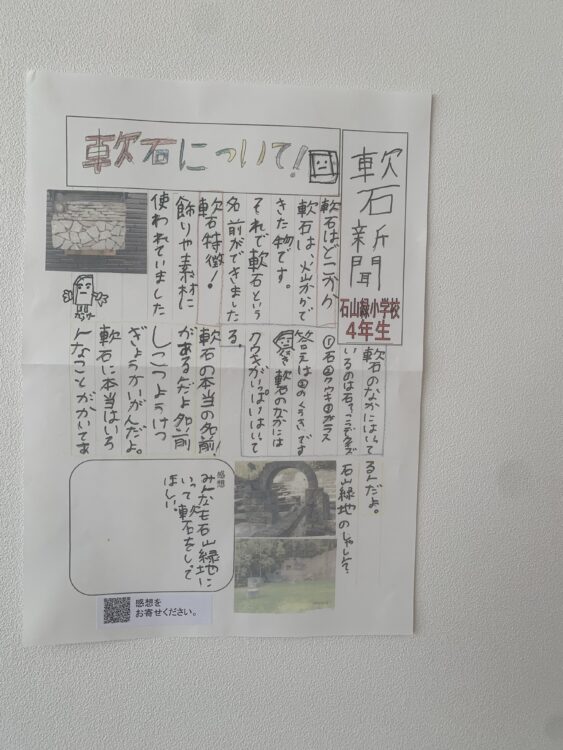 軟石新聞
石山緑小学校
4年生
軟石について!
軟石はどこから
軟石は、火山からで
きた物です。
それで軟石という
名前ができました
軟石特徴!
飾りや素材に
使われていました
軟石のなかにはいって
いるのは石
①石②クウキ③ガラス
答えは②のくうきです
軟石のなかには
クウキがいっぱいはいって
る。
軟石の本当の名前!
があるんだよ名前
しこつようけつ
ぎょうかいがんだよ。
軟石に本当はいろ
んなことがかいてあ
るんだよ。
石山緑地のしゃしんで
感想
みんなも石山緑地に
いって軟石をしって
ほしい。
感想を
お寄せください。